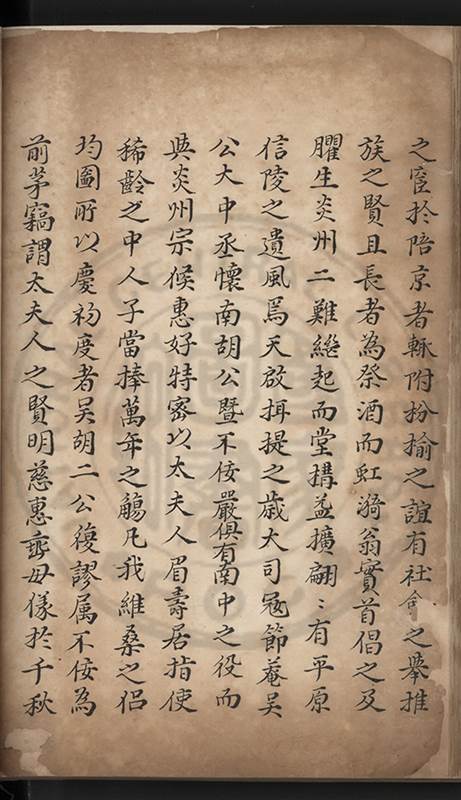 之宦於陪京者輒附枌揄之誼有社會之舉推
族之賢且長者為祭酒而虹漪翁實首倡之及
臞生炎州二難繼起而堂搆益擴翩〻有平原
信陵之遺風焉天啟挕提之歳大司冦節菴吴
公大中丞懷南胡公暨不佞嚴俱有南中之役而
與炎州宗候惠好特宻以太夫人眉壽居指使
稀齡之中人子當捧萬年之觴凡我維桑之侣
均圖所以慶初度者吴胡二公復謬属不佞為
前茅竊謂太夫人之賢明慈惠垂毋儀於千秋